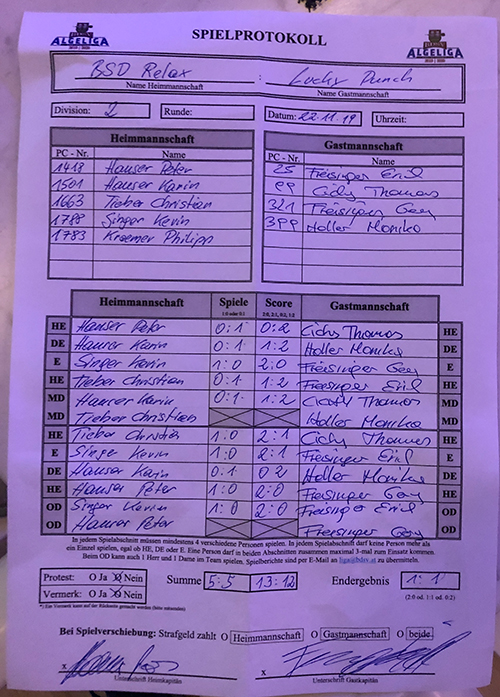 ALGELIGA SPIELPROTOKOLL ALGELIGA
BSD Relax : Lucky Punch
Name Heimmannschaft Name Gastmannschaft
Division: 2 Runde: Datum: 22.11.19 Uhrzeit:
Heimmannschaft Gastmannschaft
PC - Nr. Name PC - Nr. Name
1418 Hauser Peter 25 Freisinger Emil
1501 Hauser Karin 99 Cichy Thomas
1663 Tieber Christian 321 Freisinger Gery
1788 Singer Kevin 399 Holler Monika
1783 Kraemer Philipp
Heimmannschaft Spiele Score Gastmannschaft
1:0 oder 0:1 2:0, 2:1, 0:2, 1:2
HE Hauser Peter 0:1 0:2 Cichy Thomas HE
DE Hauser Karin 0:1 1:2 Holler Monika DE
E Singer Kevin 1:0 2:0 Freisinger Gery E
HE Tieber Christian 0:1 1:2 Freisinger Emil HE
MD Hauser Karin 0:1 1:2 Cichy Thomas MD
MD Tieber Christian Holler Monika MD
HE Tieber Christian 1:0 2:1 Cichy Thomas HE
E Singer Kevin 1:0 2:1 Freisinger Emil E
DE Hauser Karin 0:1 0 2 Holler Monika DE
HE Hauser Peter 1:0 2:0 Freisinger Gery HE
OD Singer Kevin 1:0 2:0 Freisinger Emil OD
OD Hauser Peter Freisinger Gery OD
In jedem Spielabschnitt müssen mindestens 4 verschiedene Personen spielen. In jedem Spielabschnitt darf keine Person mehr als
ein Einzel spielen, egal ob HE, DE oder E. Eine Person darf in beiden Abschnitten zusammen maximal 3-mal zum Einsatz kommen.
Beim OD kann auch 1 Herr und 1 Dame im Team spielen. Spielberichte sind per E-Mail an liga@bdsv.at zu übermitteln.
Protest: O Ja O Nein Summe 5:5 13:12 Endergebnis 1:1
Vermerk: O Ja O Nein (2:0 od. 1:1 od. 0:2)
Bei Spielverschiebung: Strafgeld zahlt O Heimmannschaft O Gastmannschaft O beide
x x
Unterschrift Heimkapitän Unterschrift Gastkapitän